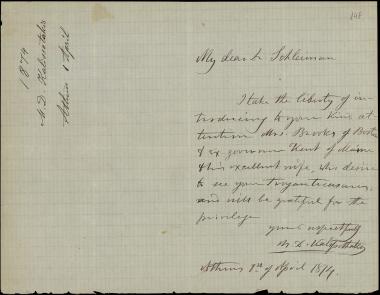 148
1874
M. D. Kalopothakes
Athens 1 April
My dear Dr Schlieman
I take the liberty of in-
troducing to your kind at-
tention Mrs. Brooks of Boston
& ex governor Kent of Maine
& his excellent wife, who desire
to see your Trojan treasures,
and will be grateful for the
privilege
yours respectfully
M. D. Kalopothakes
Athens 1st of April 1874.